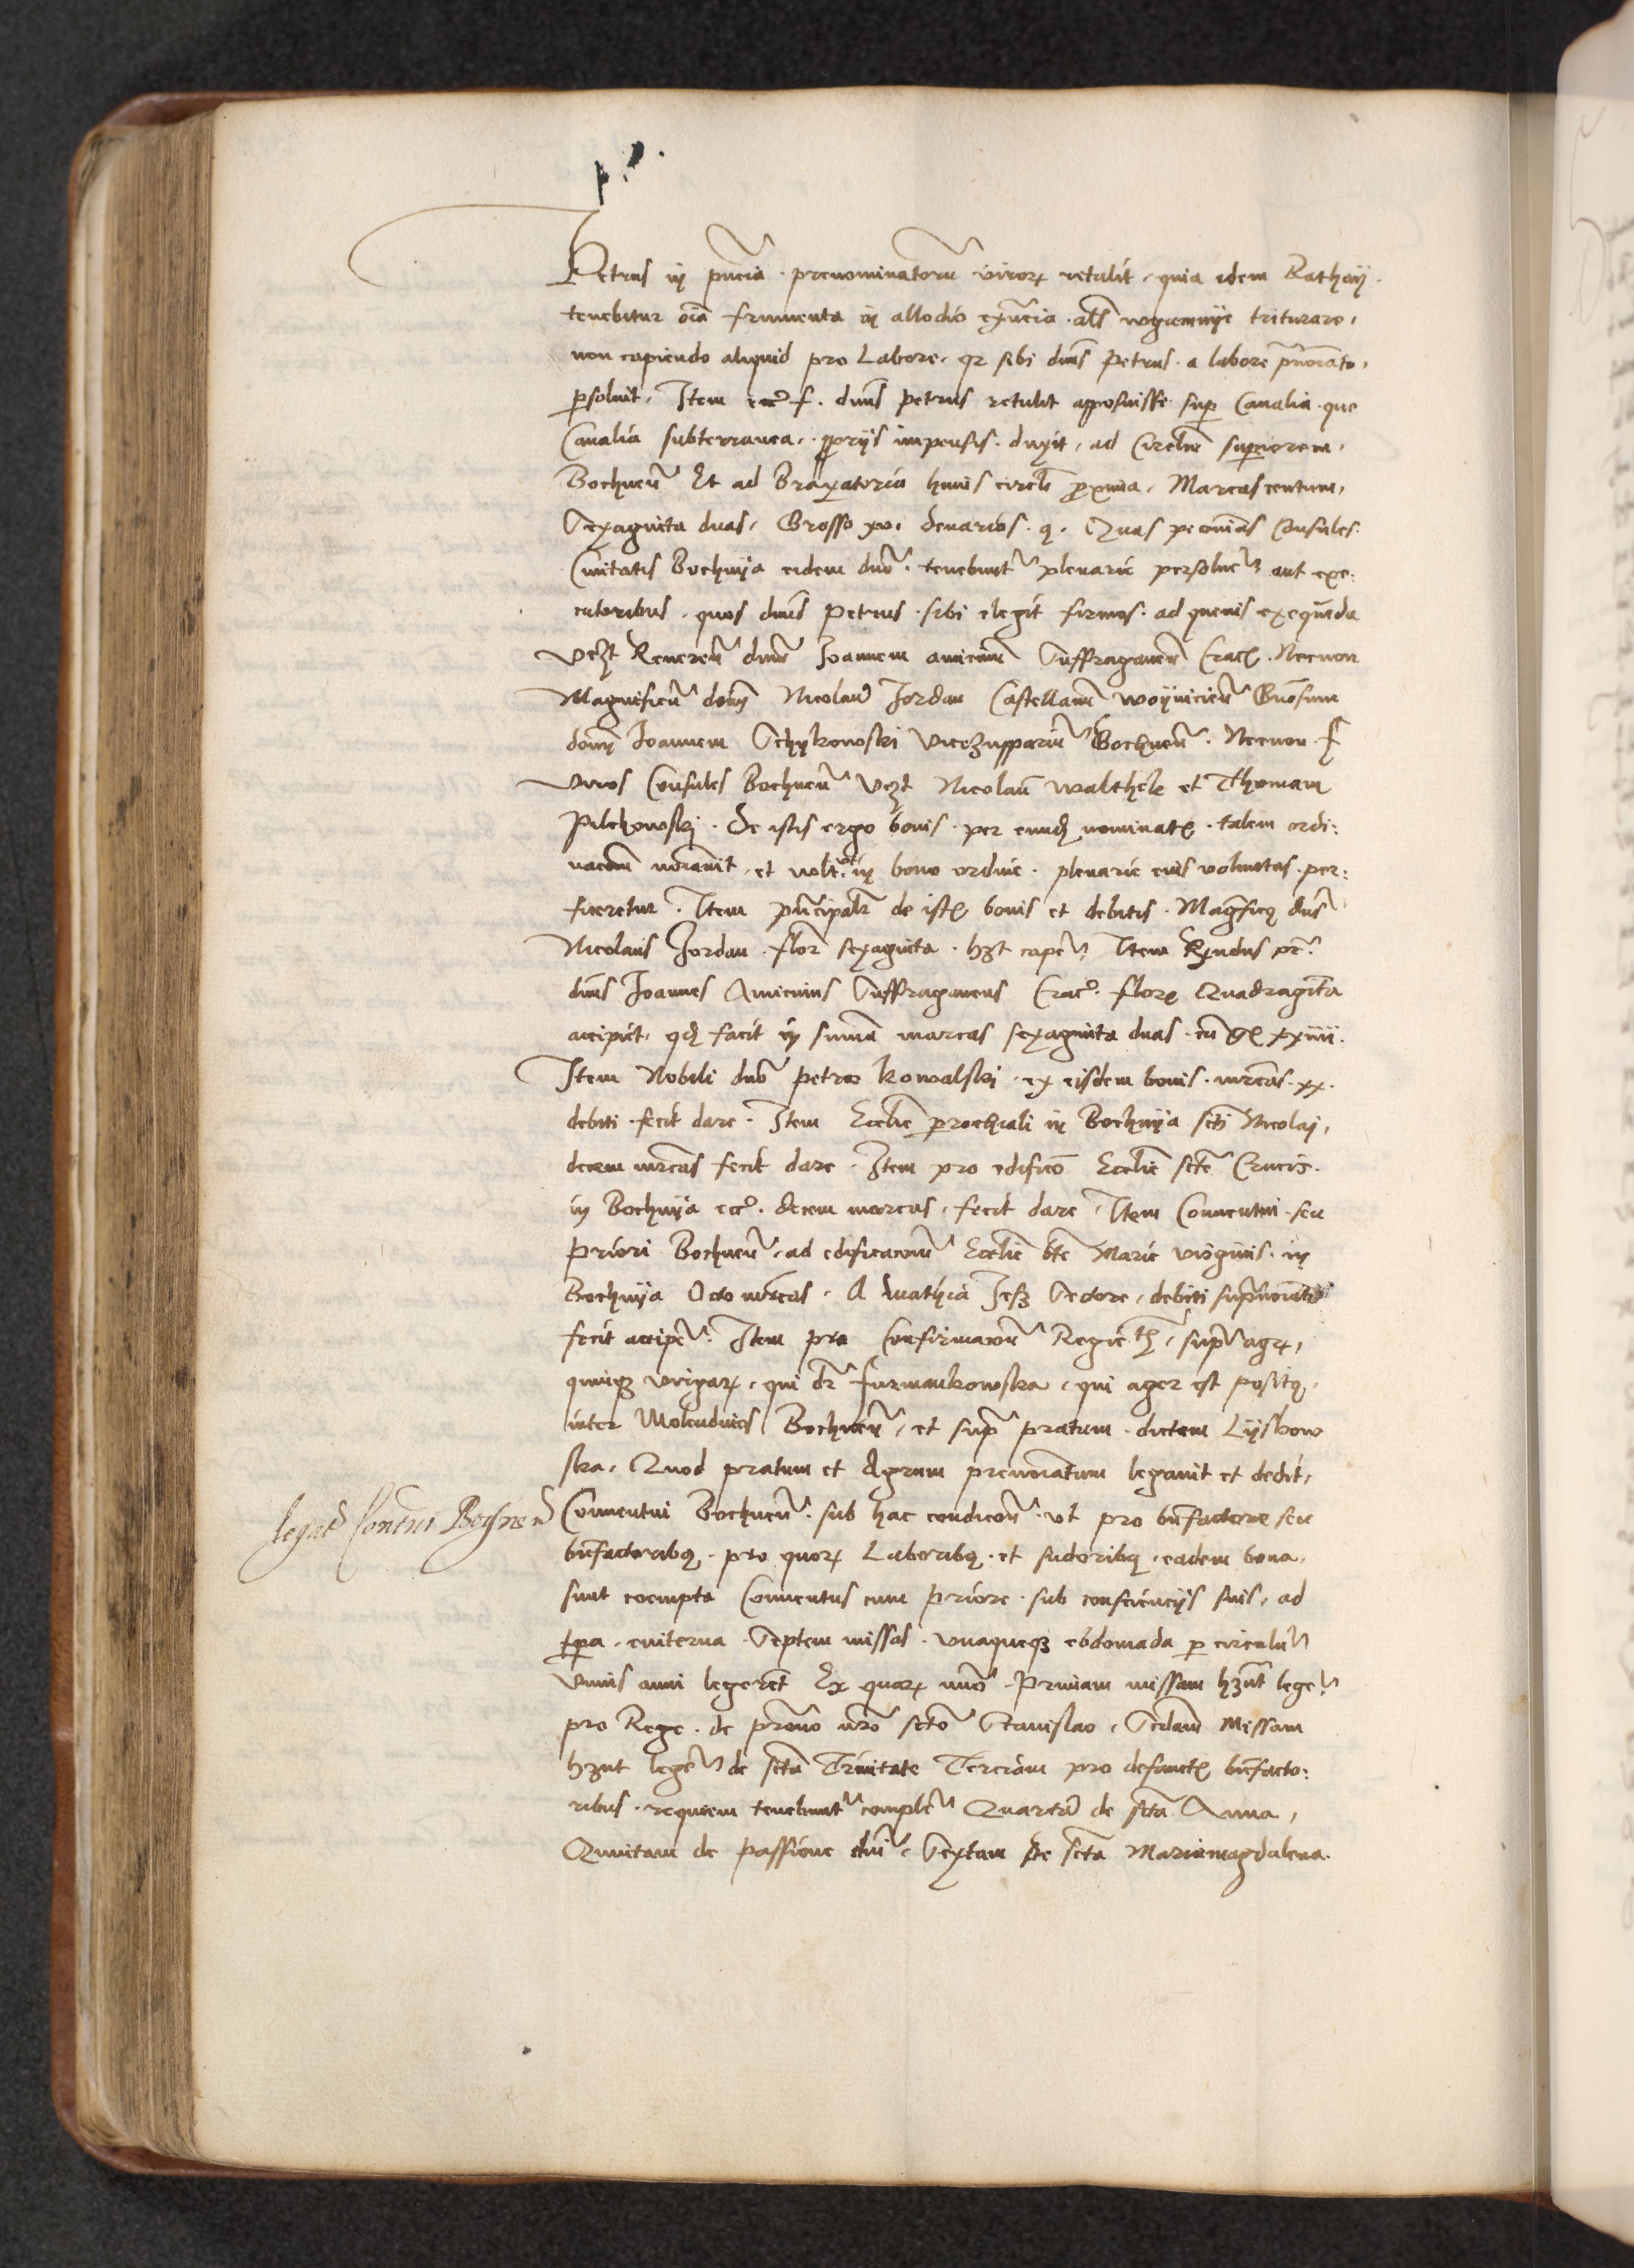 Petrus in pñcia prenominatorũ virorꝝ retulit, quia idem Rathaÿ
tenebitur oĩa frumenta in allodio exñcia als wgumnÿe triturare,
non capiendo aliquid pro Labore, qz sibi dñus Petrus a labore pñoiato,
psoluit, Item f. dñus Petrus retulit apposuisse sup Canalia que
Canalia subterranea, propriis impensis duxit, ad Circulũ supiorem,
Bochneñ Et ad Braxatoria huius circli pxima, Marcas centum,
Sexaginta duas, Grosso xvi denarios 9. Quas pecunias Consules
Ciuitatis Bochnÿa eidem dño tenebunt plenarie persoluer aut exe:
cutoribus, quos dñus Petrus sibi elegit firmos ad queuis exequẽda
vczt Reuereñ dñum Joannem amicinũ Suffraganeũ Crac Necnon
Magnificũ dom Nicolaũ Jordan Castellanũ woÿnicieñ Gñosum
dom Joannem Schÿkowski Vicezupariũ Bochneñ Necnon f
Viros Consules Bochneñ Vczt Nicolaũ walthek et Thomam
Pilchowski. De istis ergo bonis per eundẽ nominatꝭ talem ordi:
nacom et volt et in bono ordine plenarie eius voluntas per:
ficeretur. Item pñcipalr de istꝭ bonis et debitis Magficꝰ dñs
Nicolaus Jordan flor sexaginta hzt caper Item Rẽndus pr
dñus Joannes Amicinus Suffraganeus Crac. florꝭ Quadragĩta
accipiet, qd facit in sumã marcas sexaginta duas cũ gꝭ xxiiii.
Item Nobili dño Petro Kowalski, ex eisdem bonis mrcas xx
debiti fecit dare. Item Ecclie prochiali in Bochnÿa scti Nicolai,
decem mrcas fecit dare. Item pro edificõ Ecclie scte Crucis.
in Bochnÿa ecc. decem marcas, fecit dare, Item Conuentui seu
Priori Bochneñ, ad edificacom Ecclie bte Marie virginis in
Bochnÿa Octo mrcas. A Mathia Sectore, debiti supnoiato
fecit acciper Item pro Confirmacom Regie, supr agrꝭ,
quinqz virgarꝝ, qui dr furmankowska, qui ager est positꝰ
inter Molendinos Bochneñ, et supr pratum dictam Lÿskow
ska, Quod pratum et Agrum prenoiatum legauit et dedit,
Conuentui Bochneñ sub hac condicom vt pro bñfactore seu
bñfactoribꝰ, pro quorꝝ Laboribꝰ et sudoribꝰ, eadem bona,
sunt coempta Conuentus cum Priore sub conscienciis suis, ad
tpa euiterna Septem missas vnaqueqz ebdomada p circulũ
Vnius anni legeret Ex quarꝝ nuõ Primam missam hznt leger
pro Rege de prono nro scto Stanislao, Scdam Missam
hznt leger de scta Trinitate Terciam pro defunctꝭ bñfacto:
ribus requiem tenebunt compler Quartã de scta Anna,
Quintam de Passione dñi, Sextam de scta Mariamagdalena.
legatũ Contui Bochnen